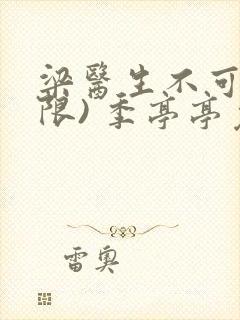 梁醫生不可
限) 季亭亭
雷奧